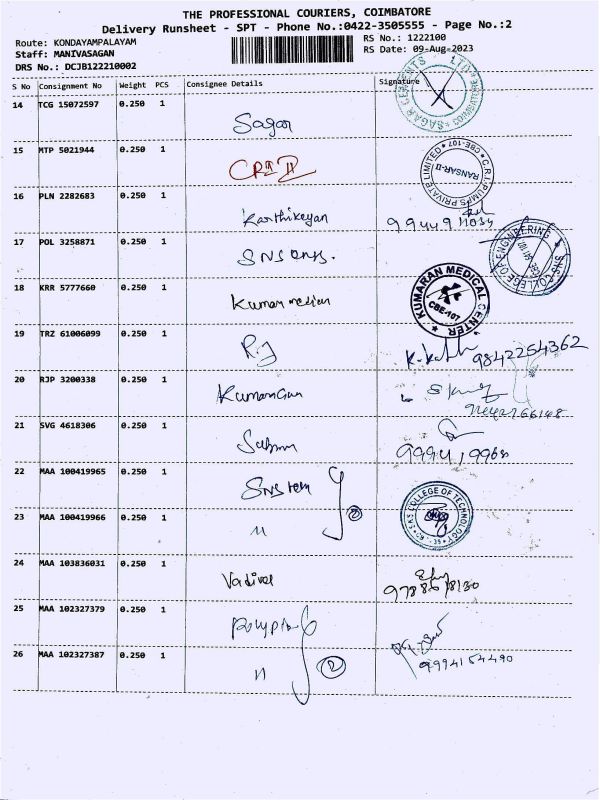 THE PROFESSIONAL COURIERS, COIMBATORE
Delivery Runsheet - SPT - Phone No.:0422-3505555 - Page No.:2
Route: KONDAYAMPALAYAM
Staff: MANIVASAGAN
DRS No.: DCJB122210002
RS No.: 1222100
RS Date: 09-Aug-2023
S No Consignment No Weight PCS Consignee Details Signature
14 TCG 15072597 0.250 1 Sagar
SAGAR CEMENTS LTD COIMBATORE
15 MTP 5021944 0.250 1 CRI II
C.R.I. PUMPS PRIVATE LIMITED CBE-107
RANSAR-II
16 PLN 2282683 0.250 1 Karthikeyan
17 POL 3258871 0.250 1 SNS
SNS COLLEGE OF ENGINEERING
CBE 641 107
18 KRR 5777660 0.250 1 Kumaran
KUMARAN MEDICAL CENTER
CBE-107
19 TRZ 61006099 0.250 1 9842254362
20 RJP 3200338 0.250 1
21 SVG 4618306 0.250 1
22 MAA 100419965 0.250 1 SNS Tech
23 MAA 100419966 0.250 1 " 2
SNS COLLEGE OF TECHNOLOGY
24 MAA 103836031 0.250 1
25 MAA 102327379 0.250 1
26 MAA 102327387 0.250 1 " 2
9994154490